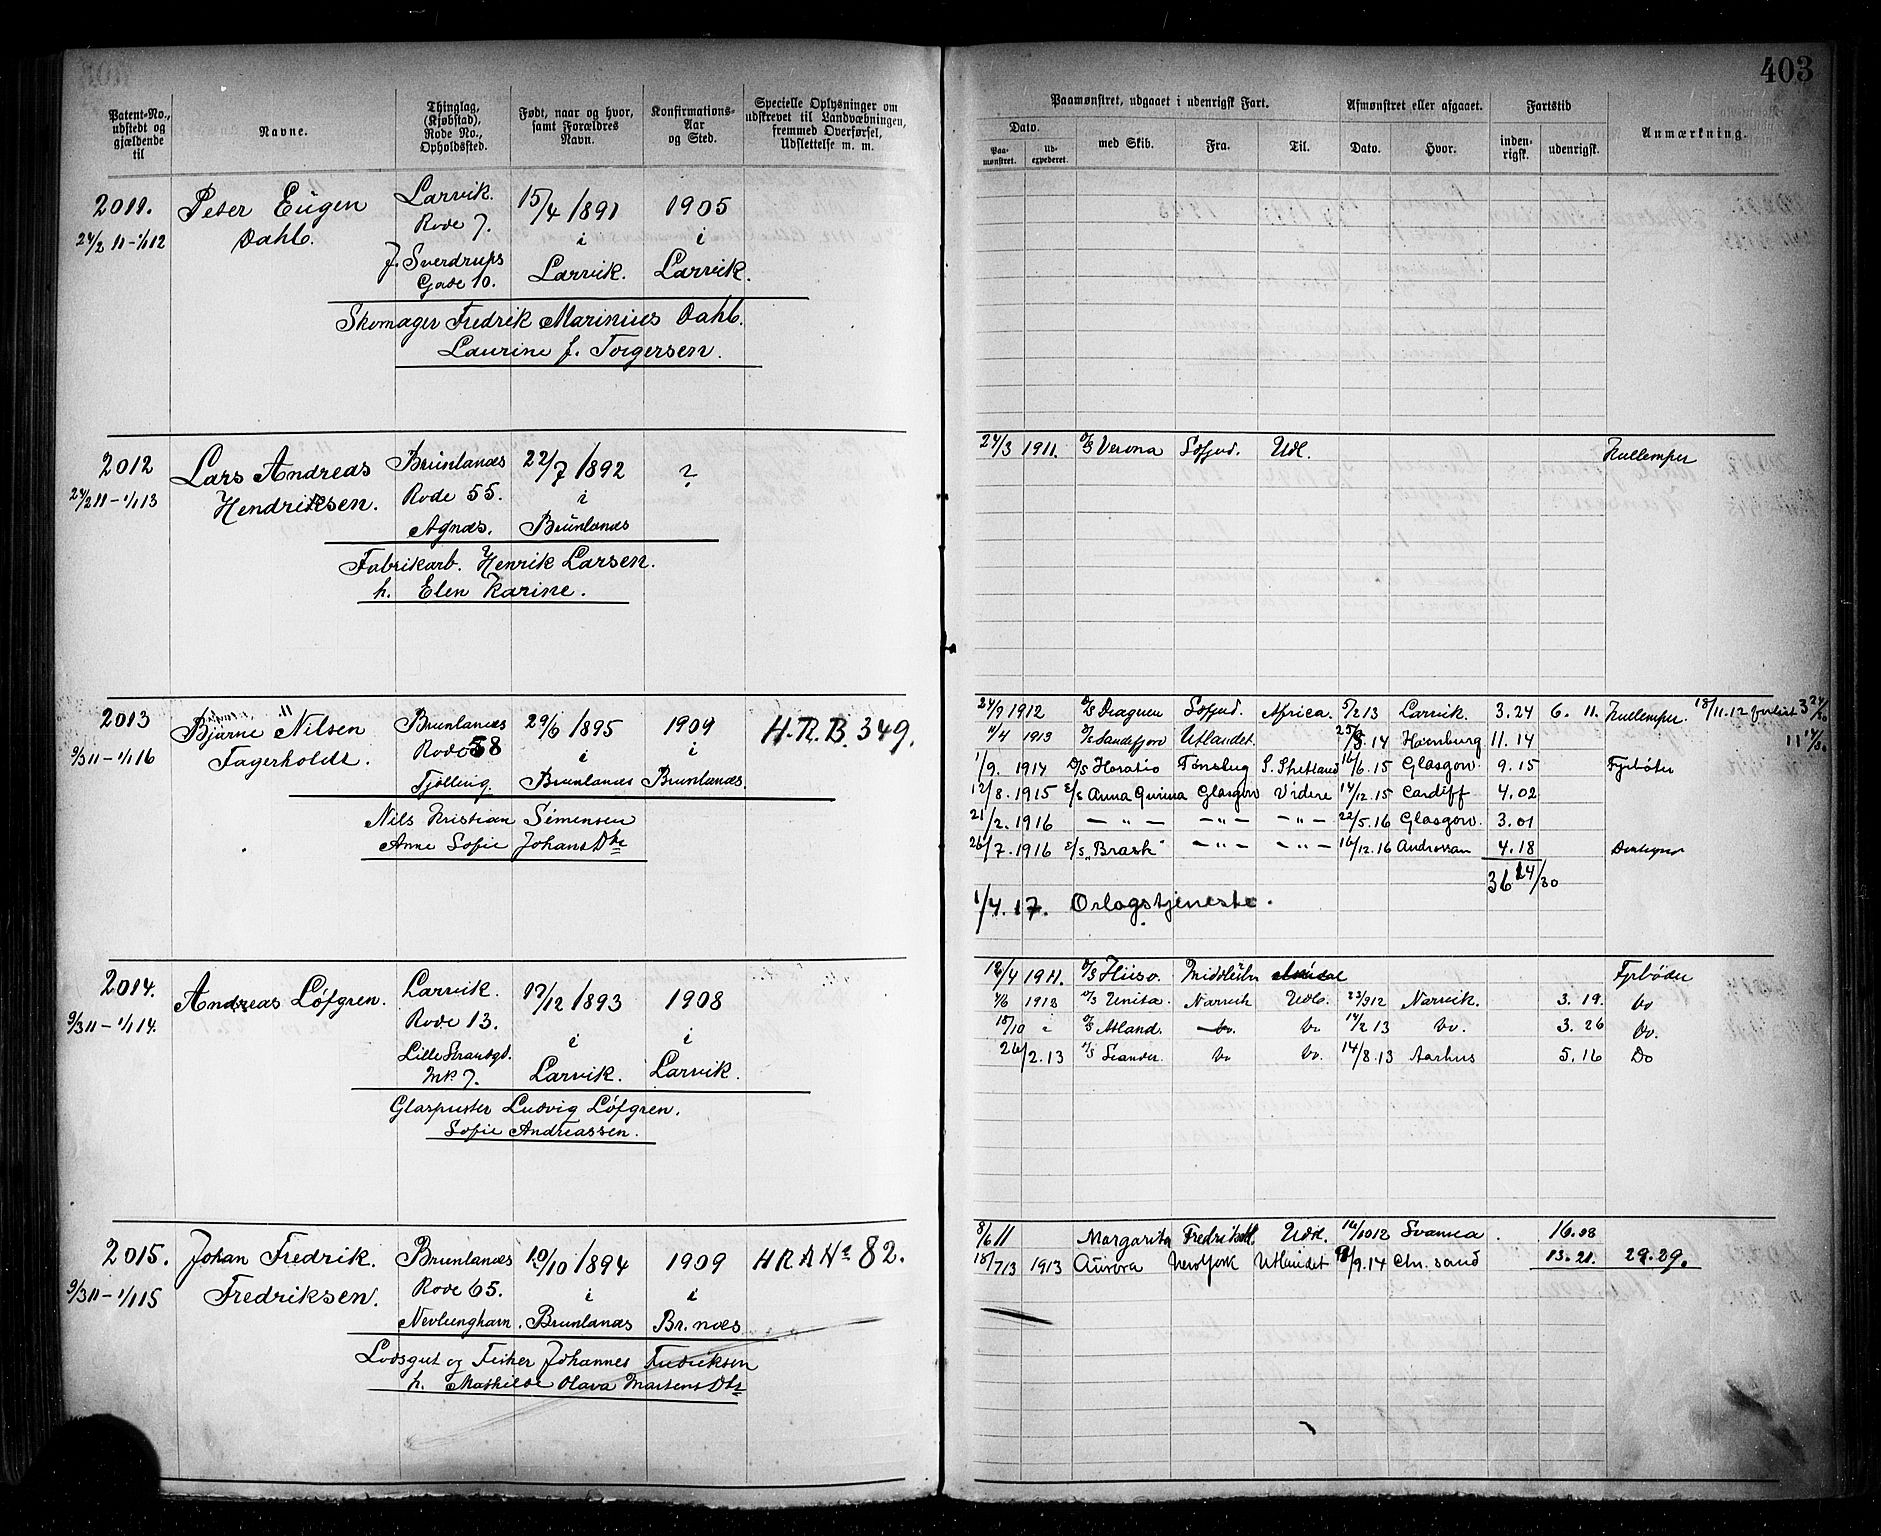 403
Patent-No., udstedt og gjældende til
Navne.
Thinglag, (Kjøbstad), Rode No., Opholdssted.
Født, naar og hvor, samt Forældres Navn.
Konfirmations-Aar og Sted.
Specielle Oplysninger om udskrevet til Landværbningen, fremmed Overførsel, Udslettelse m. m.
Paamønstret, udgaaet i udenrigsk Fart.
Dato.
Paa-mønstret.
Ud-expederet.
med Skib.
Fra.
Til.
Afmønstret eller afgaaet.
Dato.
Hvor.
Fartstid
inden-rigsk.
udenrigsk.
Anmærkning.
2011. Peter Eugen Larvik. 15/4 1891 1905
24/2 11 - 1/1 12 Dahl. Rode 7. i i
J. Sverdrups Larvik. Larvik.
Gade 10.
Skomager Fredrik Marinius Dahl.
Laurine f. Torgersen.
2012 Lars Andreas Brunlanæs 22/7 1892 ?
24/2 11 - 1/1 13 Hendriksen. Rode 55. i
Agnæs. Brunlanæs
Fabrikarb. Henrik Larsen.
h. Elen Karine.
24/3 1911. D/S Verona Sofjord. Udl. Kullemper
2013 Bjarne Nilsen Brunlanæs 29/6 1895 1909 H.R.B. 349.
9/3 11 - 1/1 16 Fagerholdt. Rode 58 i i
Tjølling. Brunlanæs Brunlanæs.
Nils Kristian Simensen
Anne Sofie Johans Dtr
24/9 1912 D/S Dragnen Sofjord. Africa. 5/2 13 Larvik. 3.24 6. 11. Kullemper. 18/11.12 3 24/30
1/4 1913 D/S Sandefjord Utlandet. 25/8.14 Hamburg 11.14 11 14/30
1/9. 1914 D/S Horatio Tønsbug S. Shetland 16/6.15 Glasgow. 9.15 Fyrbøter
12/8. 1915 E/S Anna Gurina Glasgow Videre 14/12.15 Cardiff 4.02
21/2. 1916 — " — — " — — " — 22/5.16 Glasgow. 3.01
26/7. 1916 E/S „Brask" — " — — " — 16/12.16 Androssan 4.18
36 14/30
1/4. 17. Orlogstjeneste.
2014. Andreas Löfgren. Larvik. 17/12 1893 1908
9/3 11 - 1/1 14. Rode 13. i i
Lille Strandgd. Larvik. Larvik.
No 7.
Glaspuster Ludvig Löfgren.
Sofie Andreassen.
12/4 1911. D/S Huso. Fyrbøder
4/6 1912 D/S Unita. Narvik Udl. 23/9 12 Narvik. 3. 19. Do
18/10 " D/S Atland. Do. Do 14/2 13 Do. 3. 26 Do.
26/2.13 D/S Leander. Do Do. 14/8.13 Aarhus 5. 16 Do
2015. Johan Fredrik. Brunlanæs 10/10 1894 1909 H R A No 82.
9/3 11 - 1/1 15 Fredriksen. Rode 65. i i
Nevlunghavn. Brunlanæs Br.næs
Lodsgut og Fisker Johannes Fredriksen
h. Mathilde Olava Martens Dtr
8/6 11 Margarita Fredrikst. Udl. 16/10 12 Svansea. 16.08
18/7 13 1913 Aurora NewYork Utlandet 9/9.14 Chr. sand 13.21. 29.29.